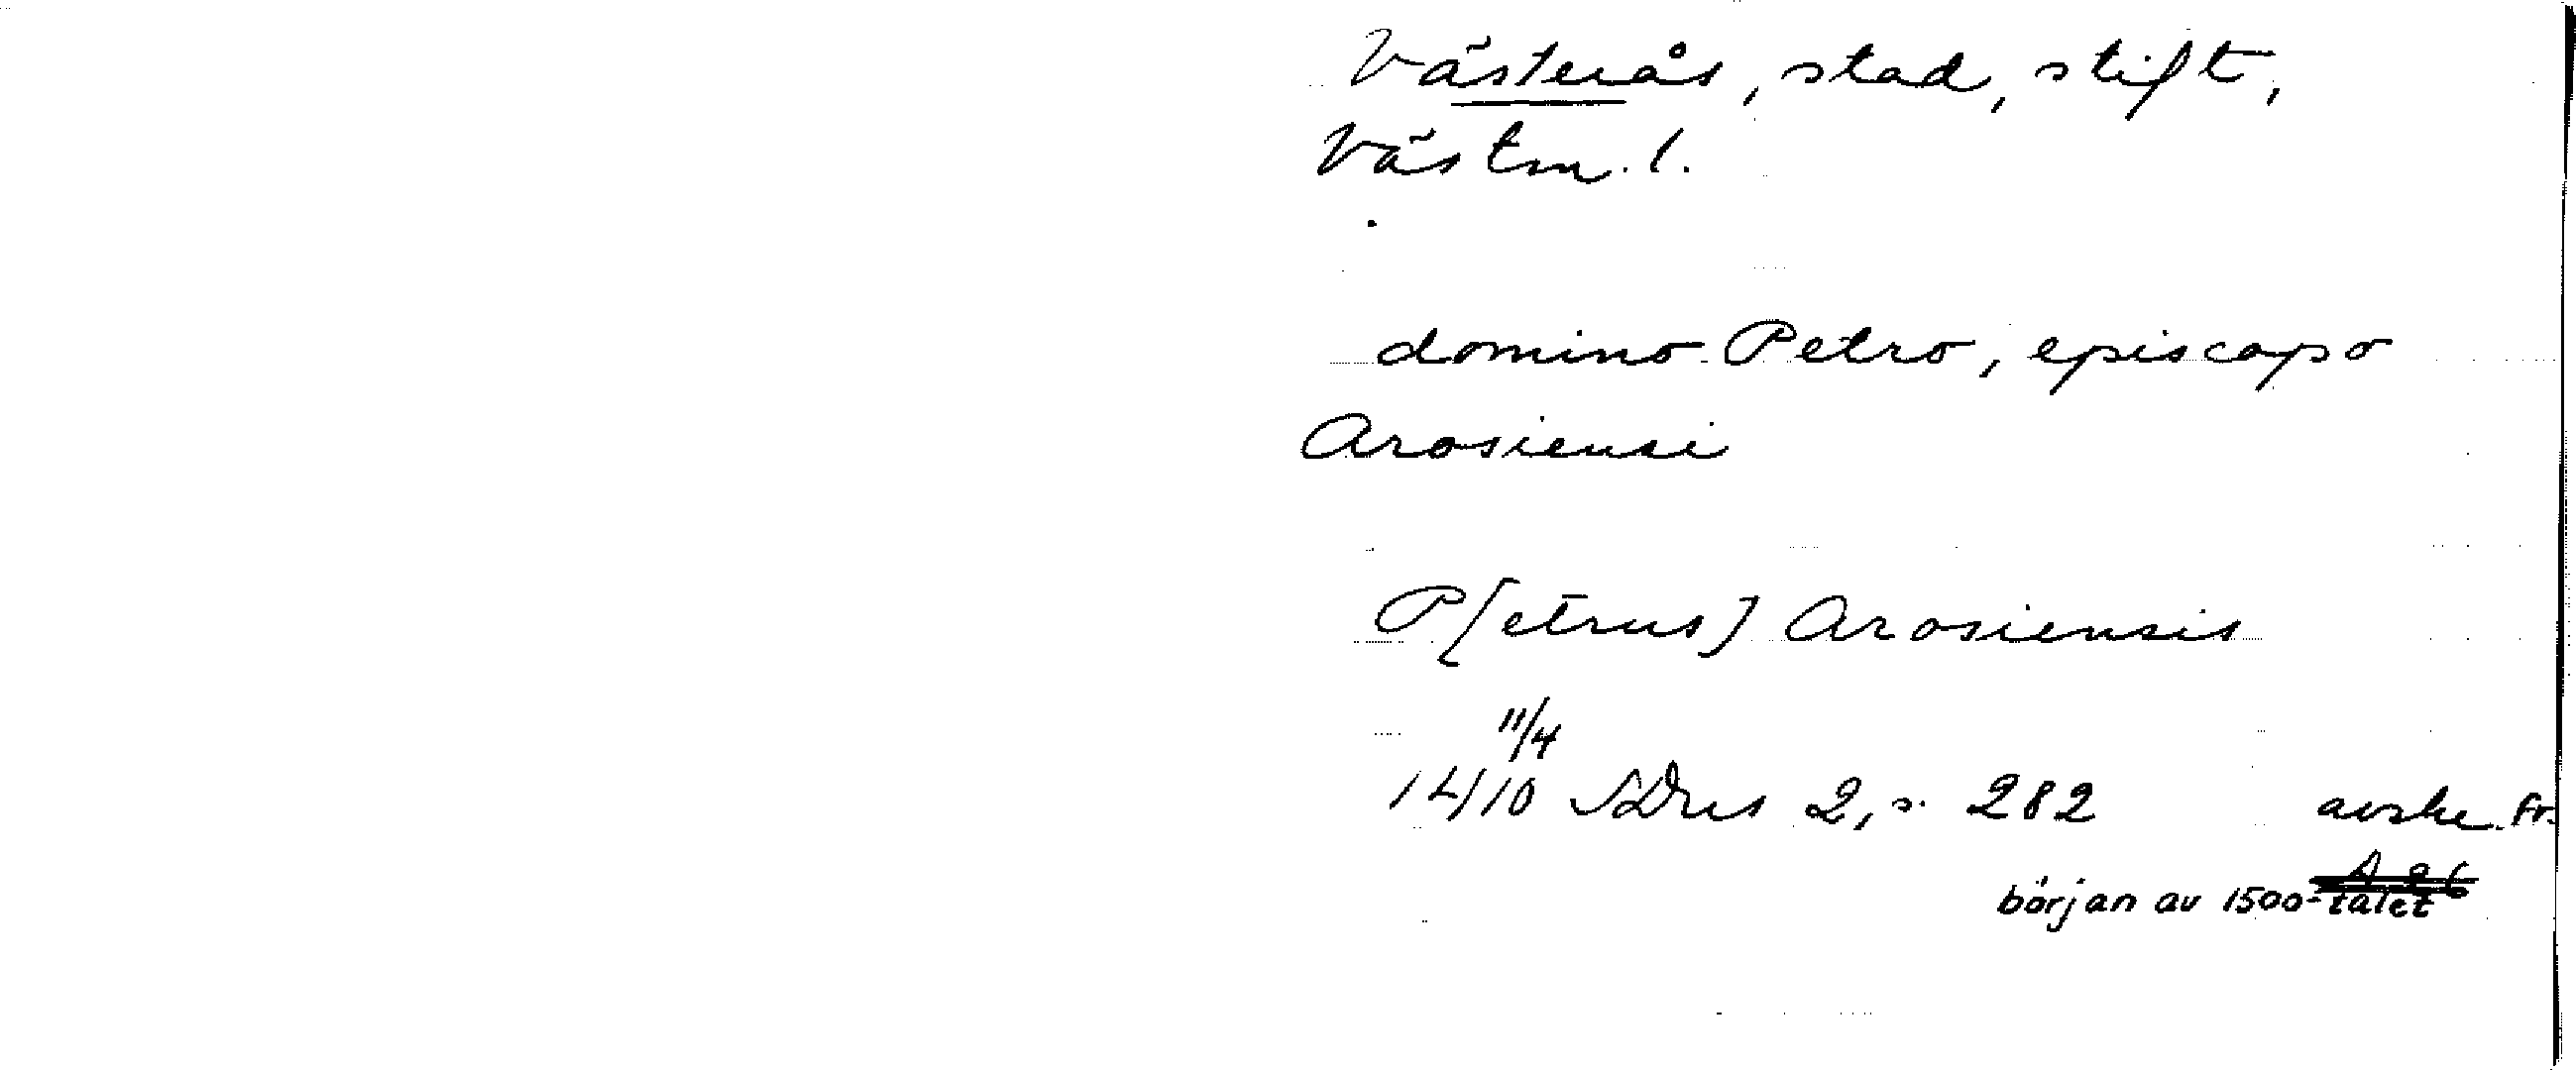 Västerås, stad, stift,
Västm. l.
domino Petro, episcopo
Arosiensi
P[etrus] Arosiensis
11/4
1410 SDns 2, s. 282 avskr. fr.
början av 1500-talet